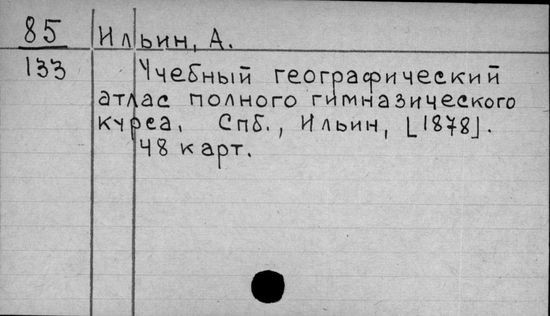 85 Ильин, А.
133 Учебный географический
атлас полного гимназического
курса. Спб., Ильин, [1878].
48 карт.